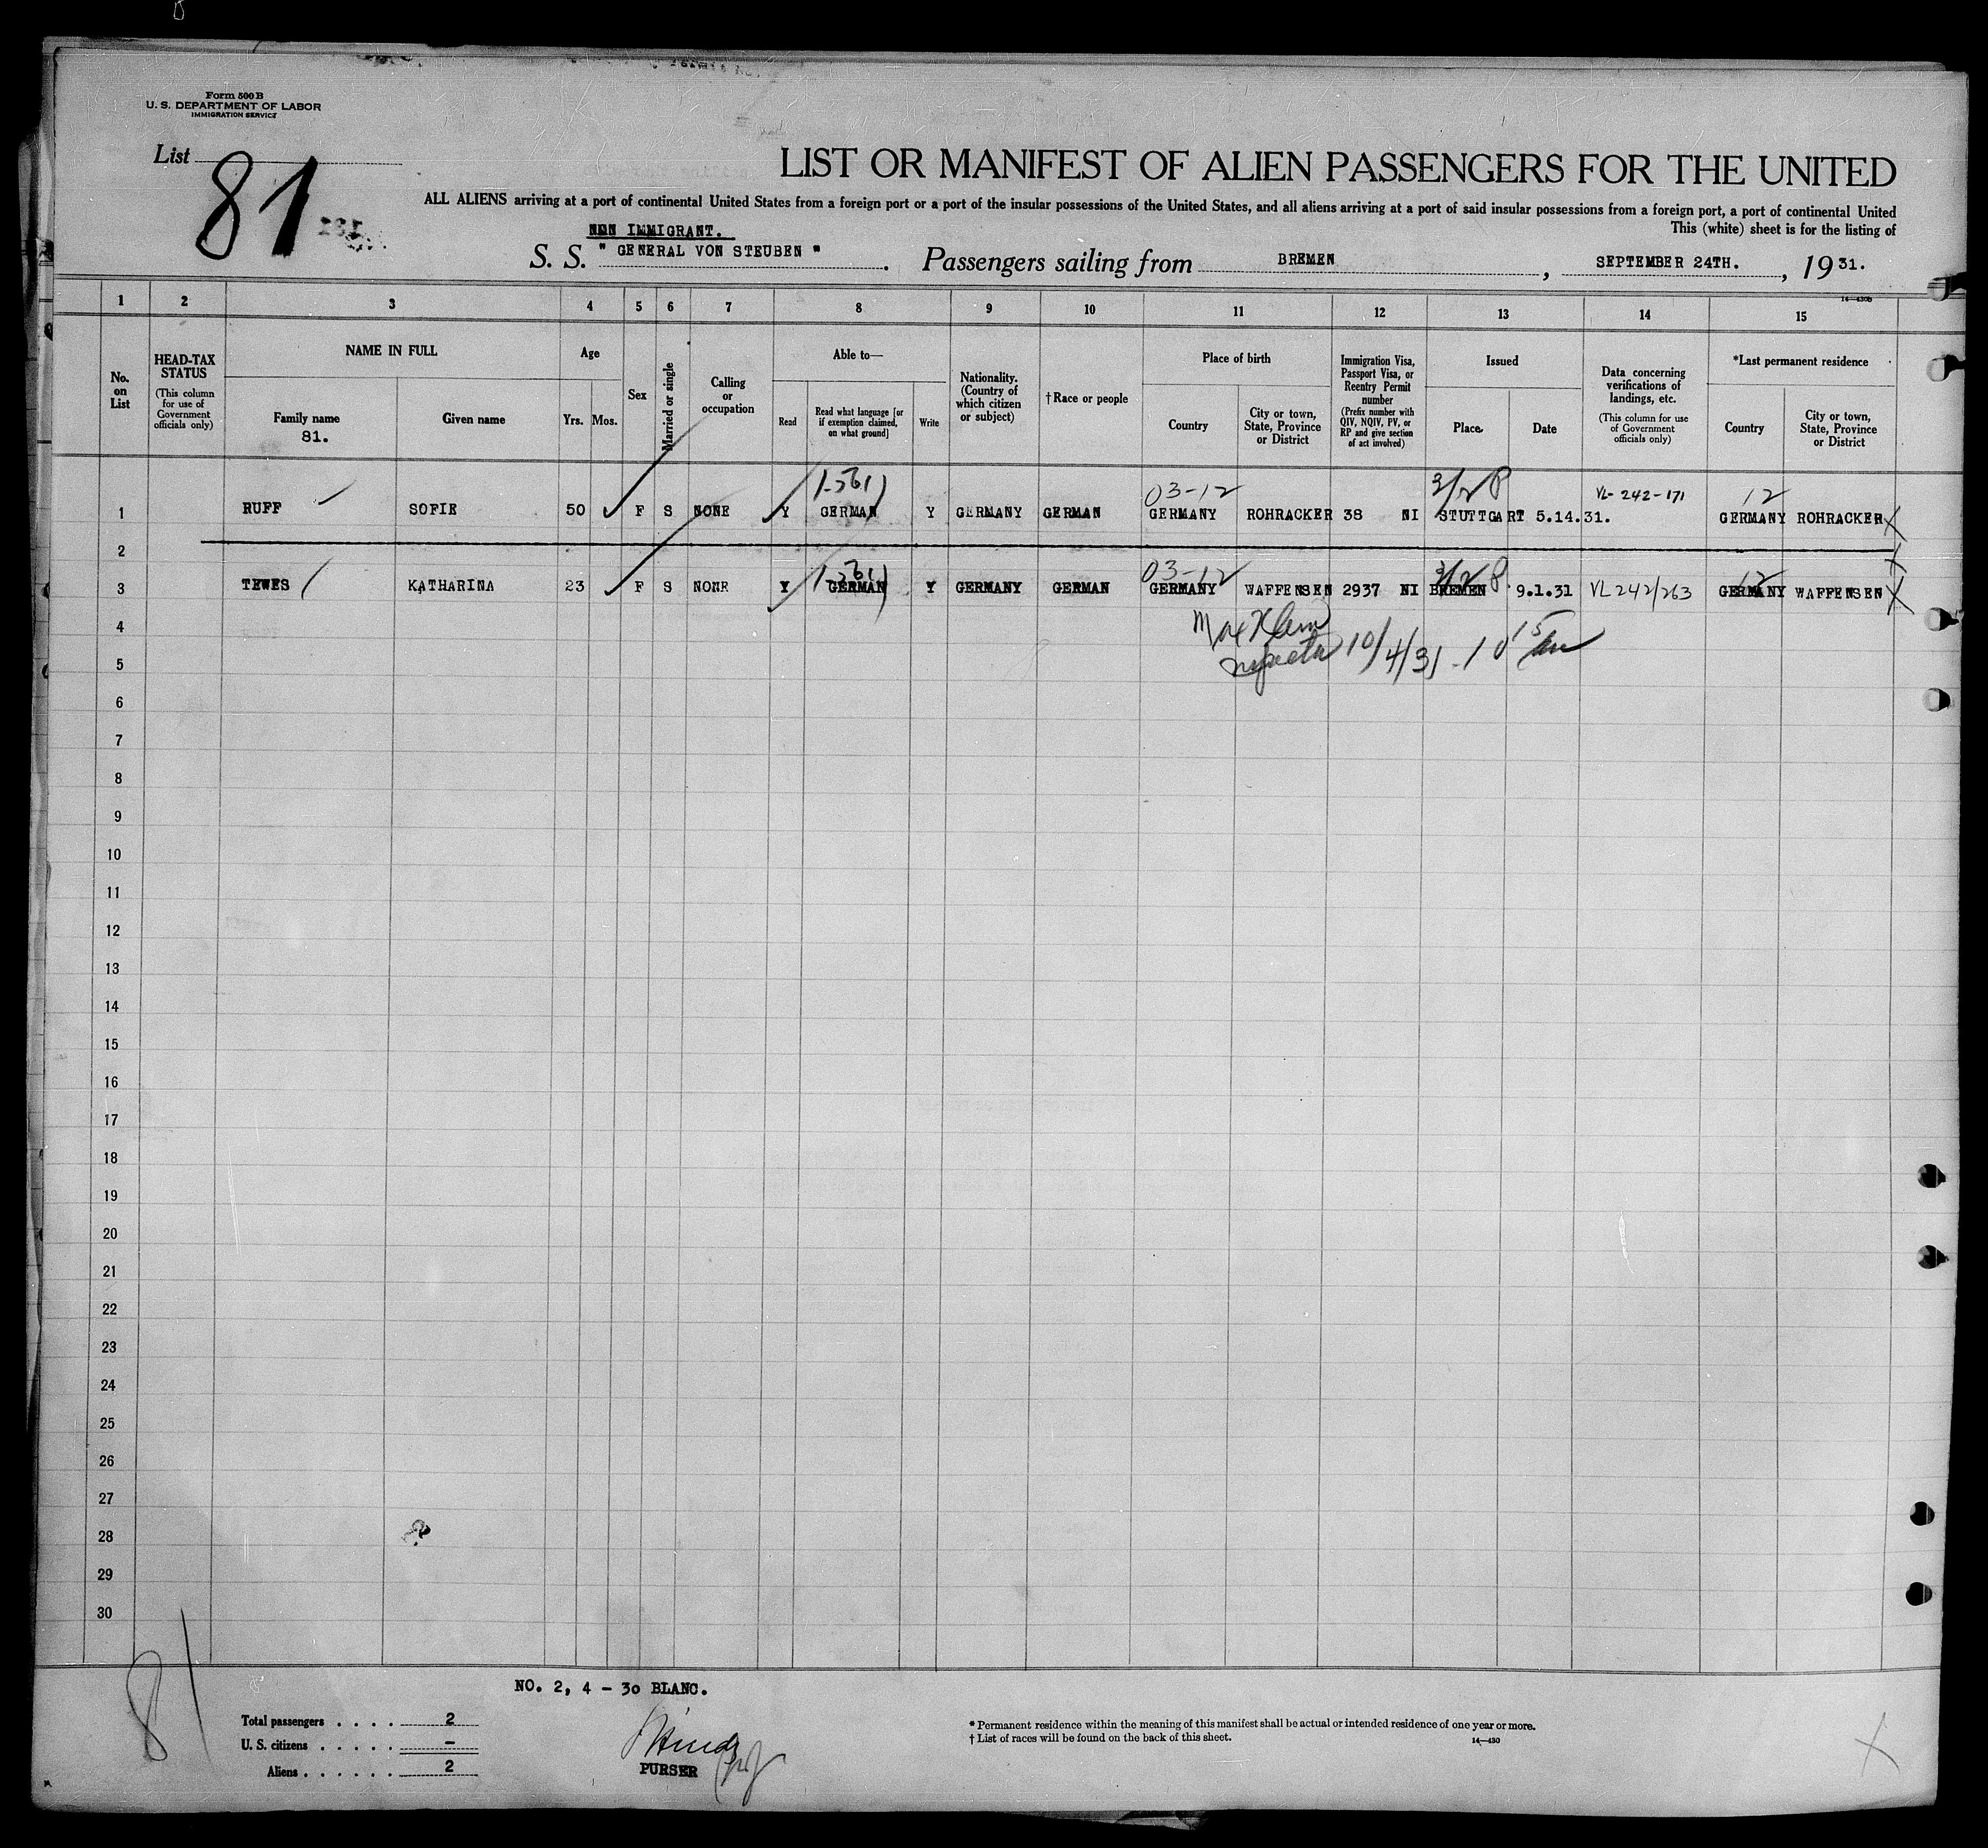 Form 500 B
U. S. DEPARTMENT OF LABOR
IMMIGRATION SERVICE
List 81
LIST OR MANIFEST OF ALIEN PASSENGERS FOR THE UNITED
ALL ALIENS arriving at a port of continental United States from a foreign port or a port of the insular possessions of the United States, and all aliens arriving at a port of said insular possessions from a foreign port, a port of continental United
This (white) sheet is for the listing of
NON IMMIGRANT.
S. S. " GENERAL VON STEUBEN " . Passengers sailing from BREMEN , SEPTEMBER 24TH. , 19 31.
14—430b
1 2 3 4 5 6 7 8 9 10 11 12 13 14 15
No. on List
HEAD-TAX STATUS
(This column for use of Government officials only)
NAME IN FULL
Family name
81.
Given name
Age
Yrs. Mos.
Sex
Married or single
Calling or occupation
Able to—
Read
Read what language [or if exemption claimed, on what ground]
Write
Nationality. (Country of which citizen or subject)
†Race or people
Place of birth
Country
City or town, State, Province or District
Immigration Visa, Passport Visa, or Reentry Permit number
(Prefix number with QIV, NQIV, PV, or RP and give section of act involved)
Issued
Place
Date
Data concerning verifications of landings, etc.
(This column for use of Government officials only)
*Last permanent residence
Country
City or town, State, Province or District
03-12 VL-242-171 12
1 RUFF SOFIE 50 F S NONE Y GERMAN Y GERMANY GERMAN GERMANY ROHRACKER 38 NI STUTTGART 5.14.31. GERMANY ROHRACKER
2
03-12 12
3 TEWES KATHARINA 23 F S NONR Y GERMAN Y GERMANY GERMAN GERMANY WAFFENSEN 2937 NI BREMEN 9.1.31 VL 242/263 GERMANY WAFFENSEN
4
5 10/4/31 - 10 15 am
6
7
8
9
10
11
12
13
14
15
16
17
18
19
20
21
22
23
24
25
26
27
28
29
30
81
NO. 2, 4 - 30 BLANC.
Total passengers . . . . 2
U. S. citizens . . . . . —
Aliens . . . . . . 2
PURSER
* Permanent residence within the meaning of this manifest shall be actual or intended residence of one year or more.
† List of races will be found on the back of this sheet.
14—430